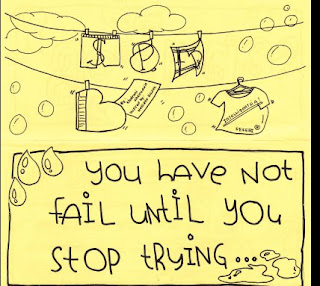 SPM
YOU HAVE NOT
FAIL UNTIL YOU
STOP TRYING...